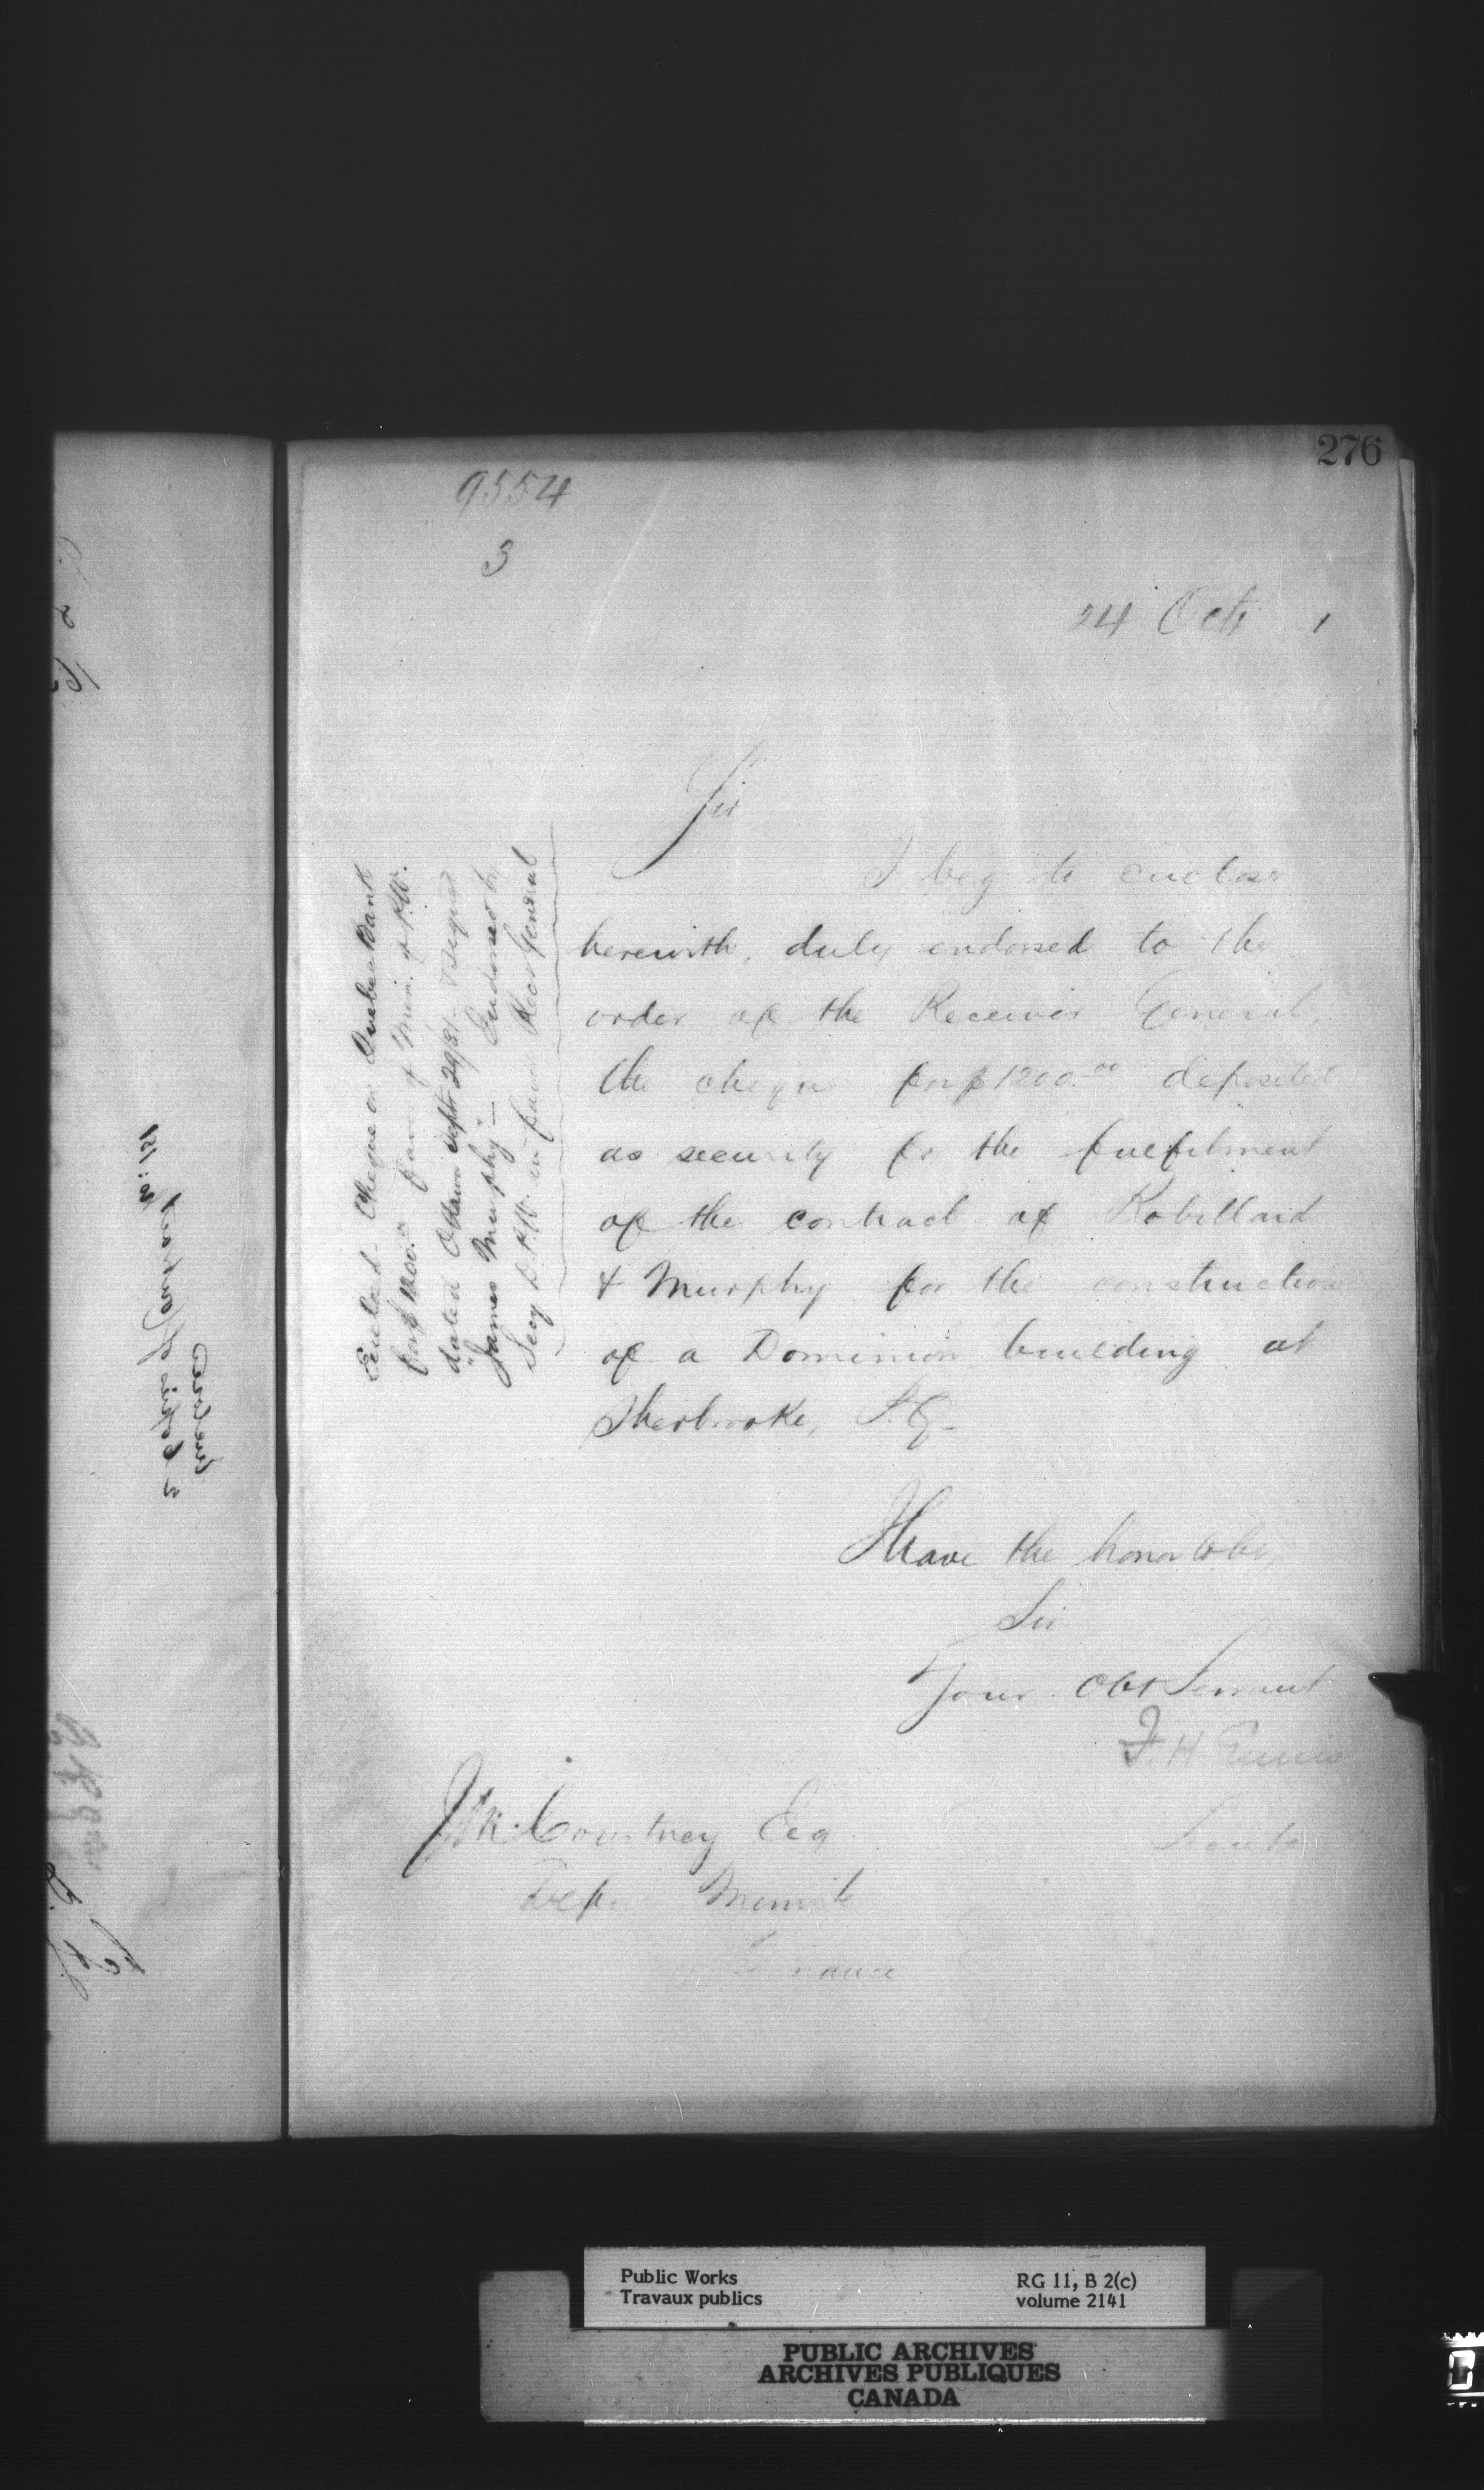 276
9554
3
24 Octr 1
Sir
I beg to enclose
herewith, duly endorsed to the
order of the Receiver General,
the cheque for $1200.00 deposited
as security for the fulfilment
of the contract of Robillard
& Murphy for the construction
of a Dominion building at
Sherbrooke, P.Q.
I have the honor to be,
Sir
Your Obt Servant
F. H. Ennis
Secretary
J. M. Courtney Esq
Depy Minister
Finance
Enclosed. Cheque on Quebec Bank
for $1200.00 favor of Min. of P.W.
dated Ottawa Septr 29/81. & Signed
"James Murphy" — Endorsed by
Secy D.P.W. in favor Recr General
3 Copies of Contract No: 151
Public Works
Travaux publics
RG 11, B 2(c)
volume 2141
PUBLIC ARCHIVES
ARCHIVES PUBLIQUES
CANADA